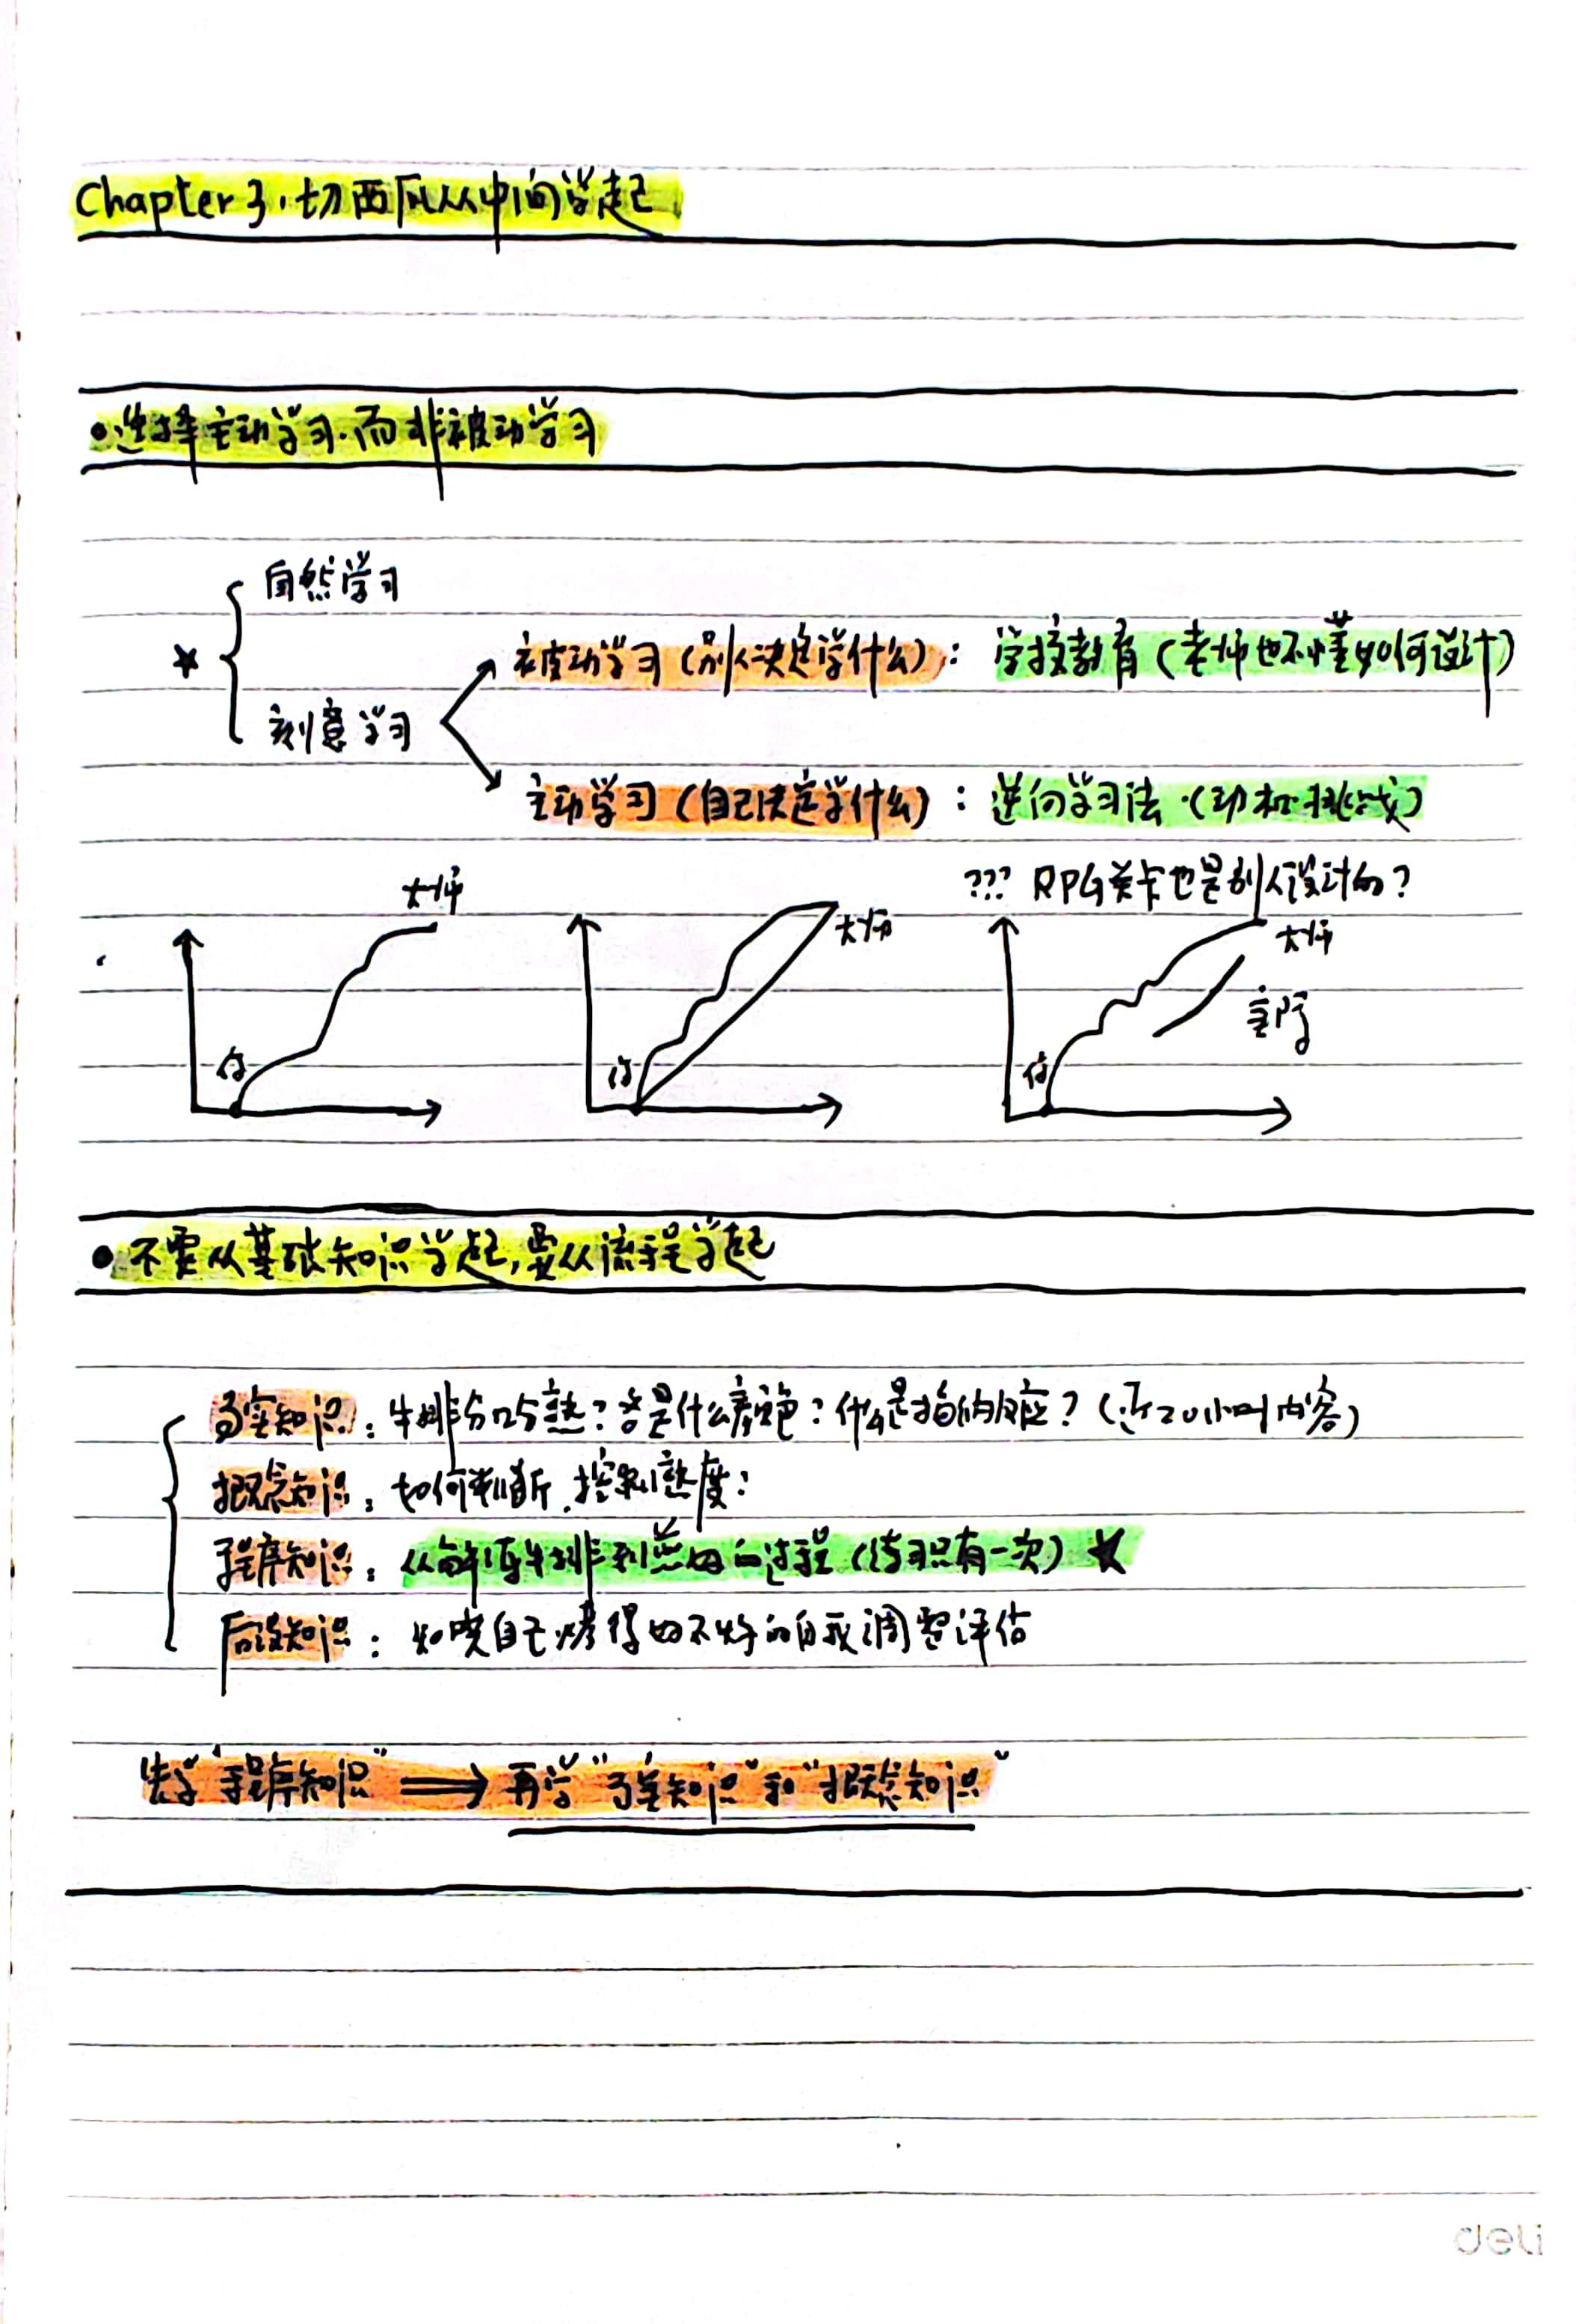 Chapter 3. 切西瓜从中间学起
•选择主动学习.而非被动学习
自然学习
★
被动学习(别人决定学什么): 学校教育(老师也不懂如何设计)
刻意学习
主动学习(自己决定学什么): 逆向学习法.(动机.挑战)
??? RPG关卡也是别人设计的?
大师
大师
大师
你
你
你
•不要从基础知识学起,要从流程学起
事实知识: 牛排分几分熟?各是什么颜色?什么是梅纳反应?(近20小时内容)
概念知识: 如何判断.控制熟度?
程序知识: 从解冻牛排到煎好的过程(练习只有一次)★
后设知识: 知晓自己烤得好不好的自我调整评估
先学"程序知识" ⟹ 再学"事实知识"和"概念知识"
deli